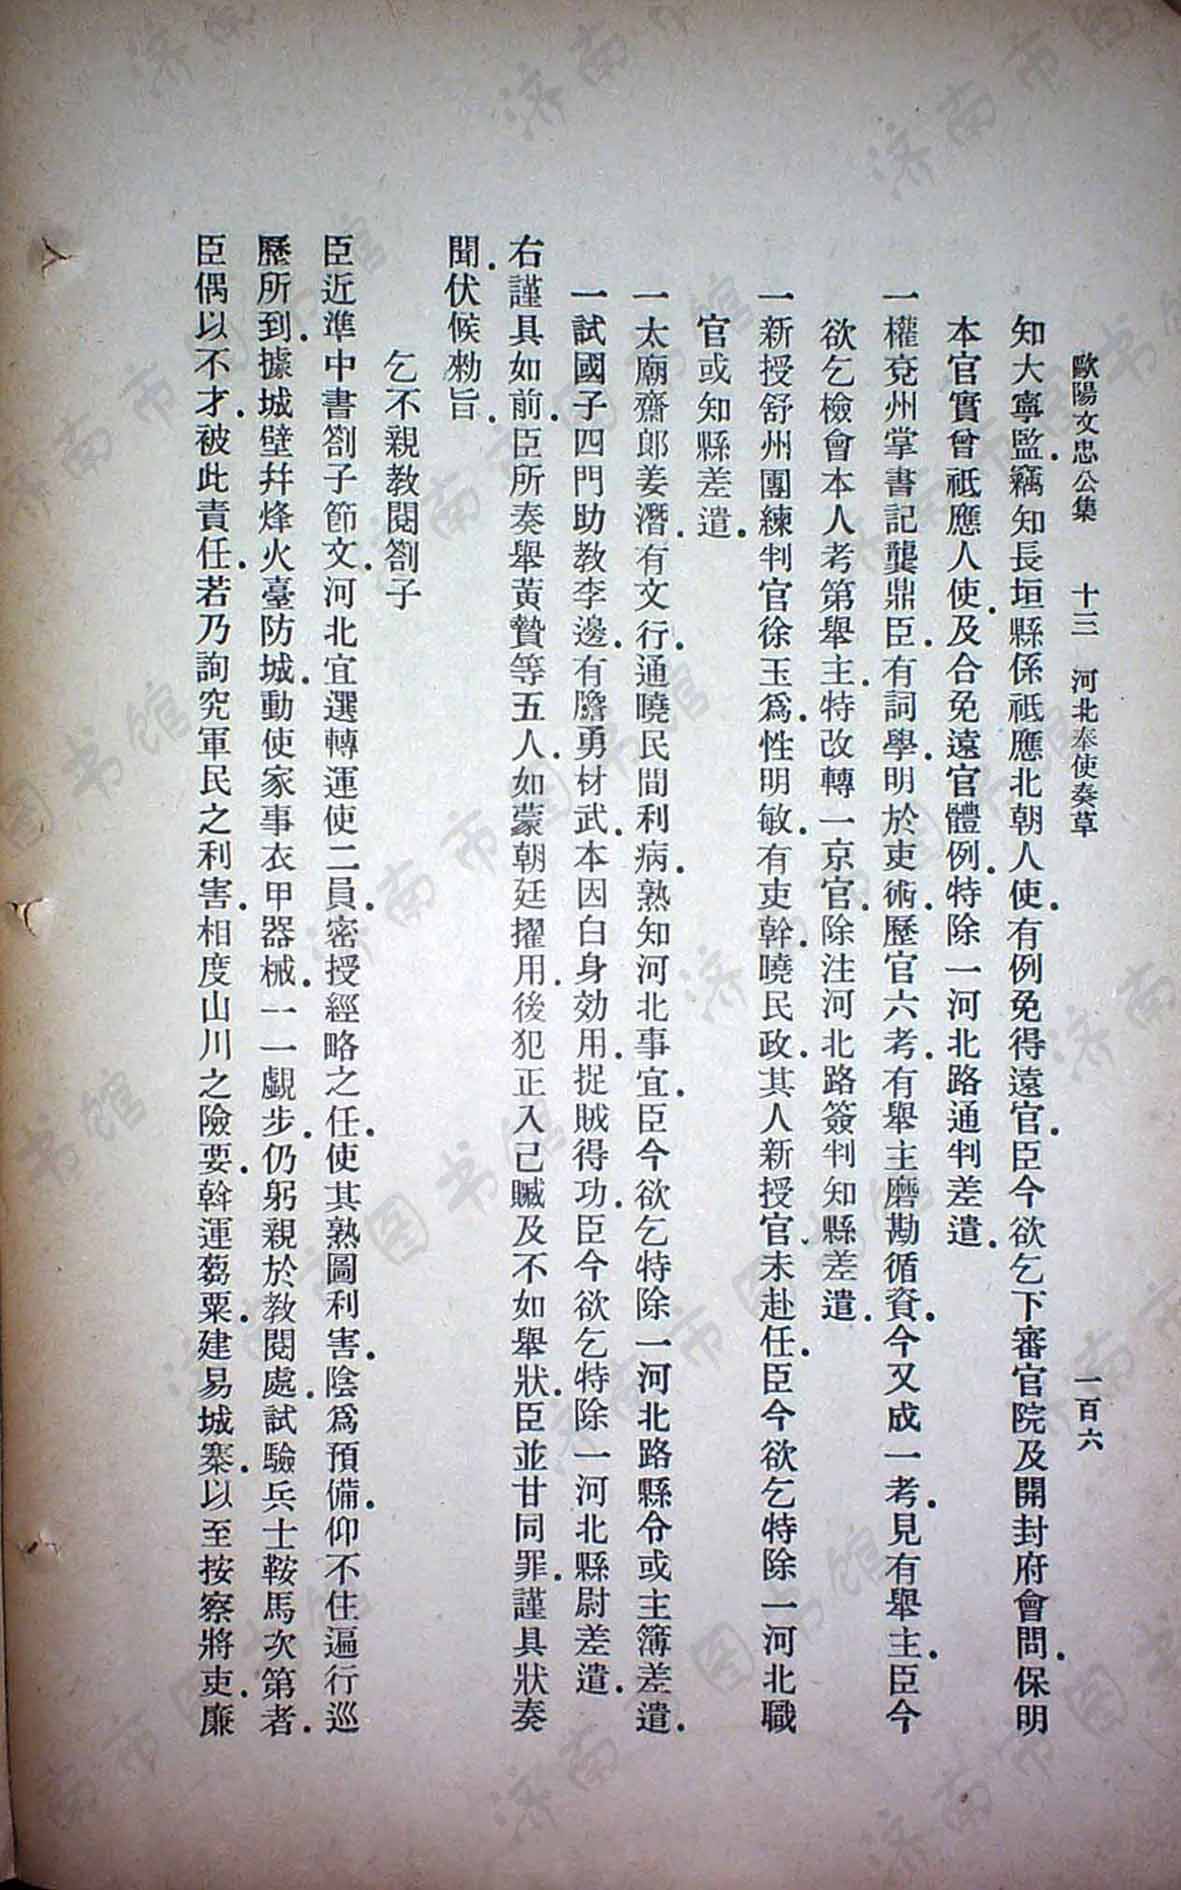 歐陽文忠公集 十三 河北奉使奏草 一百六
知大寧監.竊知長垣縣係祗應北朝人使.有例免得遠官.臣今欲乞下審官院及開封府會問.保明
本官實曾祗應人使.及合免遠官體例.特除一河北路通判差遣.
一權兗州掌書記龔鼎臣.有詞學.明於吏術.歷官六考.有舉主磨勘循資.今又成一考.見有舉主.臣今
欲乞檢會本人考第舉主.特改轉一京官.除注河北路簽判知縣差遣.
一新授舒州團練判官徐玉爲.性明敏.有吏幹.曉民政.其人新授官.未赴任.臣今欲乞特除一河北職
官或知縣差遣.
一太廟齋郎姜潛.有文行.通曉民間利病.熟知河北事宜.臣今欲乞特除一河北路縣令或主簿差遣.
一試國子四門助教李邊.有膽勇材武.本因白身効用.捉賊得功.臣今欲乞特除一河北縣尉差遣.
右謹具如前.臣所奏舉黃贄等五人.如蒙朝廷擢用.後犯正入己贓及不如舉狀.臣並甘同罪.謹具狀奏
聞.伏候勑旨.
乞不親教閱劄子
臣近準中書劄子節文.河北宜選轉運使二員.密授經略之任.使其熟圖利害.陰爲預備.仰不住遍行巡
歷所到.據城壁幷烽火臺防城.動使家事衣甲器械.一一覷步.仍躬親於教閱處.試驗兵士鞍馬次第者.
臣偶以不才.被此責任.若乃詢究軍民之利害.相度山川之險要.斡運芻粟.建易城寨.以至按察將吏.廉
濟南市图书馆